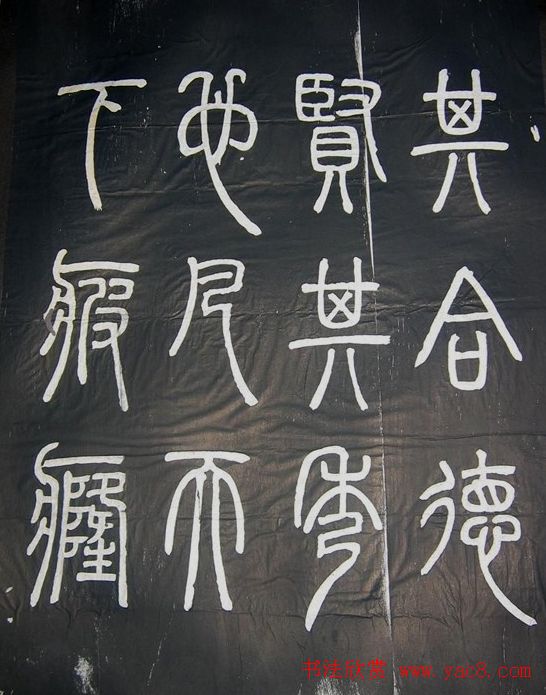 其合德
賢其秀
也凡天
下疲癃
书法欣赏 www.yac8.com